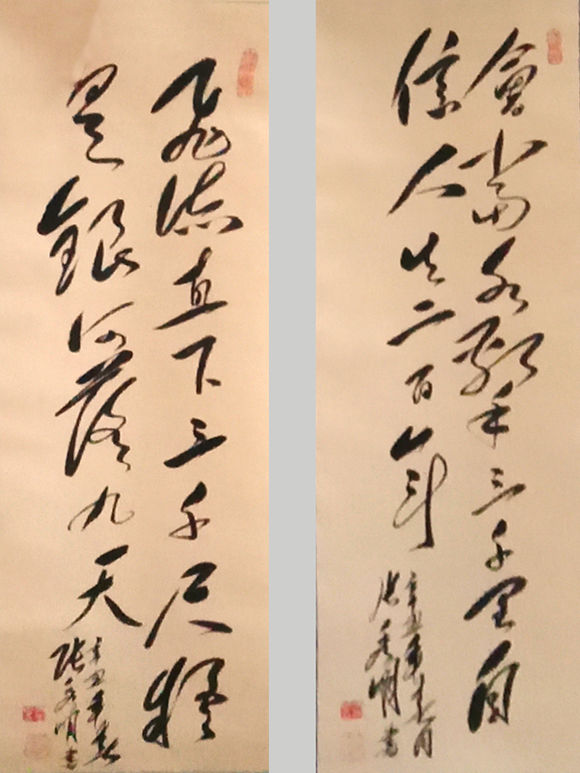 會當水擊三千里自
信人生二百年
辛丑年春月
張明書
飛流直下三千尺疑
是銀河落九天
辛丑年春
張明書